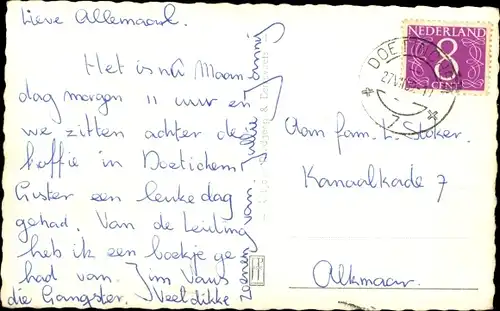 Lieve Allemaal.
Het is nu Maan
dag morgen 11 uur en
we zitten achter de
koffie in Doetichem
Gister een leuke dag
gehad. Van de Leiding
heb ik een boekje ge
had van. Jim Vaus
die Gangster. Veel dikke
zoenen van. Jullie
NEDERLAND
8
CENT
Aan fam. K. Stoker.
Kanaalkade 7
Alkmaar.